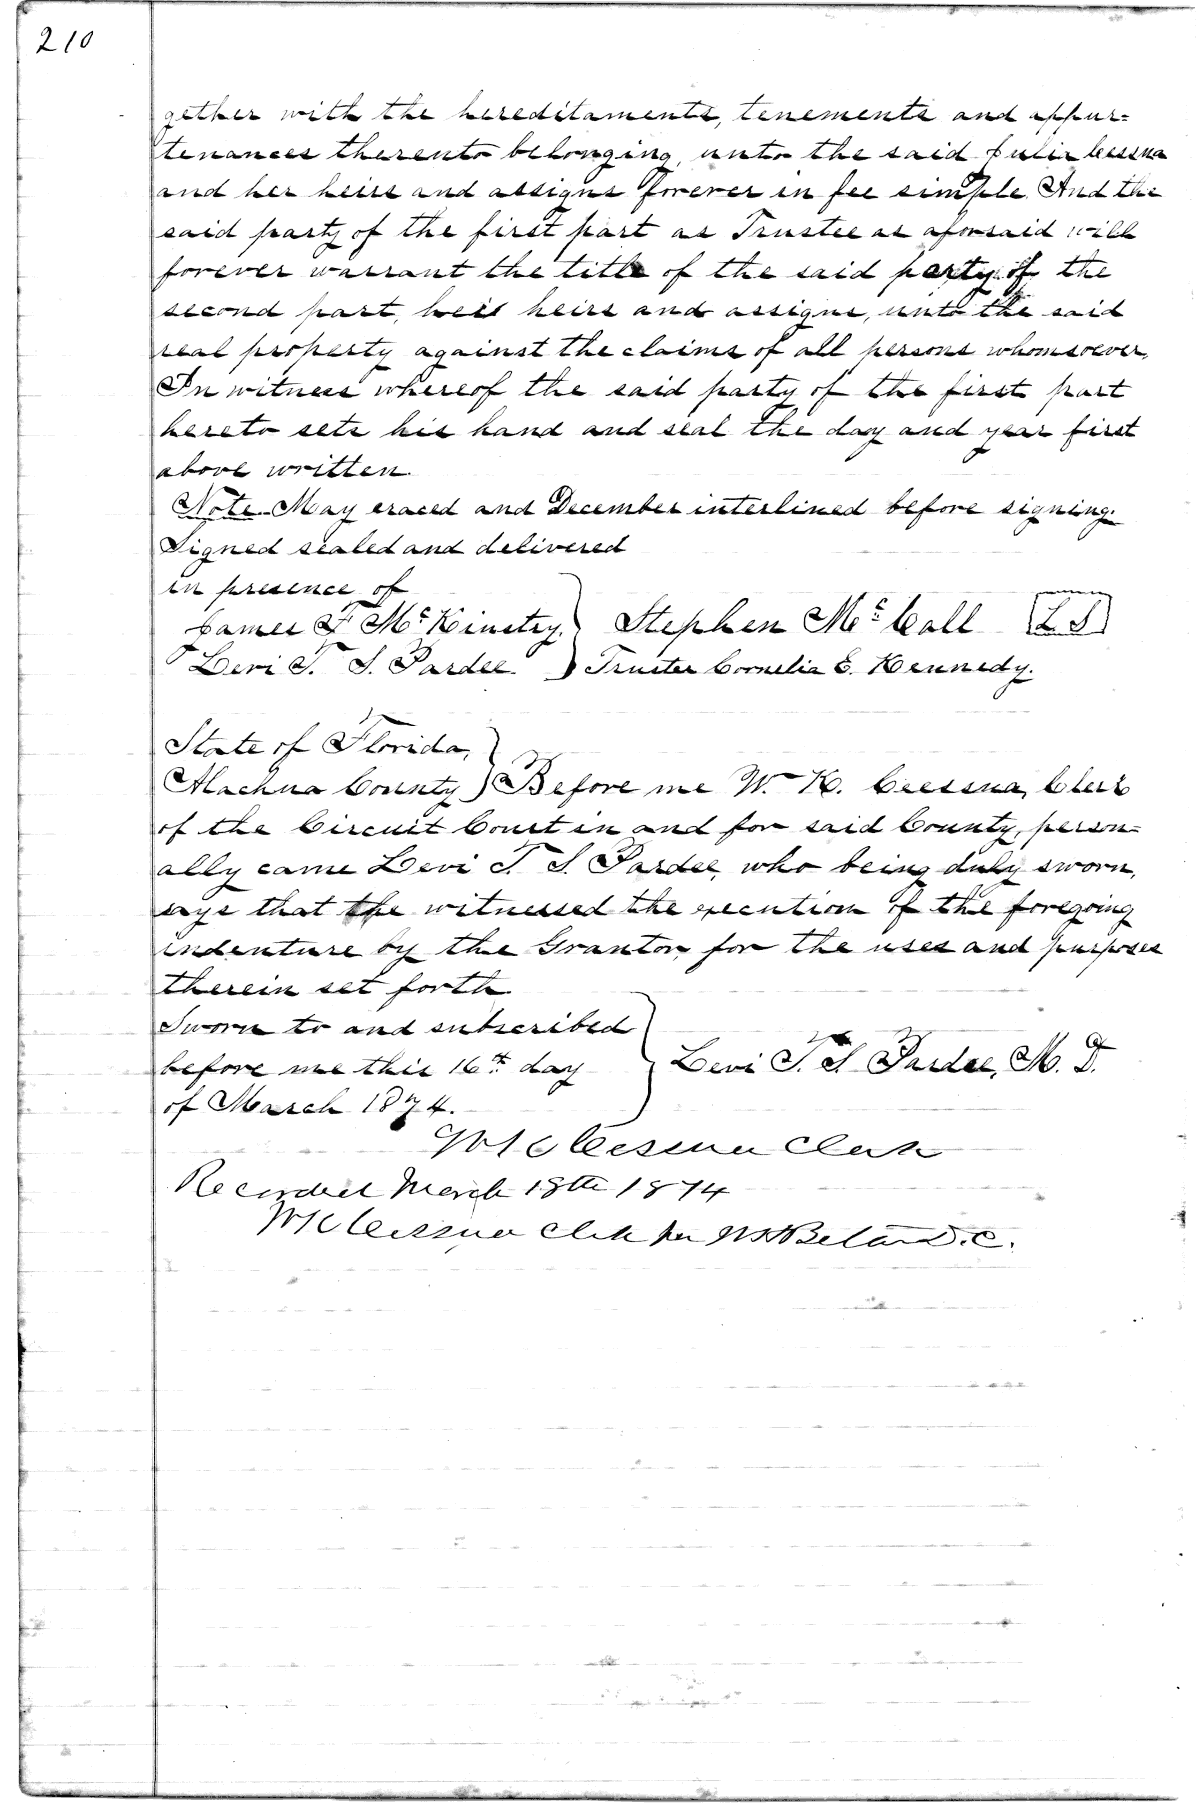 210
gether with the hereditaments, tenements and appur=
tenances thereunto belonging, unto the said Julia Cessna
and her heirs and assigns forever in fee simple. And the
said party of the first part as Trustee as aforsaid will
forever warrant the title of the said party of the
second part, heis heirs and assigns, unto the said
real property against the claims of all persons whomsoever.
In witness whereof the said party of the first part
hereto sets his hand and seal the day and year first
above written.
Note. May eraced and December interlined before signing.
Signed sealed and delivered
in presence of
James F McKinstry. Stephen McCall L S
Levi T. S. Pardee. Trustee Cornelia E. Kennedy.
State of Florida,
Alachua County Before me W. K. Ceessna, Clerk
of the Circuit Court in and for said County, person=
ally came Levi T. S. Pardee, who being duly sworn,
says that he witnessed the execution of the foregoing
indenture by the Grantor for the uses and purposes
therein set forth.
Sworn to and subscribed
before me this 16th day Levi T. S. Pardee, M. D.
of March 1874.
W K Cessna Clerk
Recorded March 18th 1874
W K Cessna Clk per D. C.